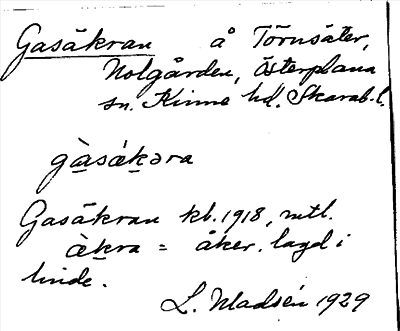 Gasäkran å Törnsäter,
Nolgården, Österplana
sn. Kinne hd. Skarab. l.
gàsäkəra
Gasäkran kb. 1918, mtl.
äkra = åker. lagd i
linde.
L. Madsén 1929